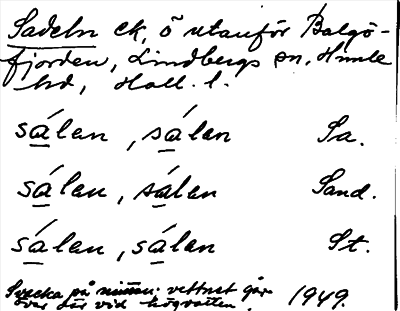 Sadeln ck, ö utanför Balgö-
fjorden, Lindbergs sn, Himle
hd, Hall. l.
sálen , sálen Sa.
sálen , sálen Sand.
sálen , sálen St.
Svacka på mitten: vattnet går
över där vid högvatten. 1949.